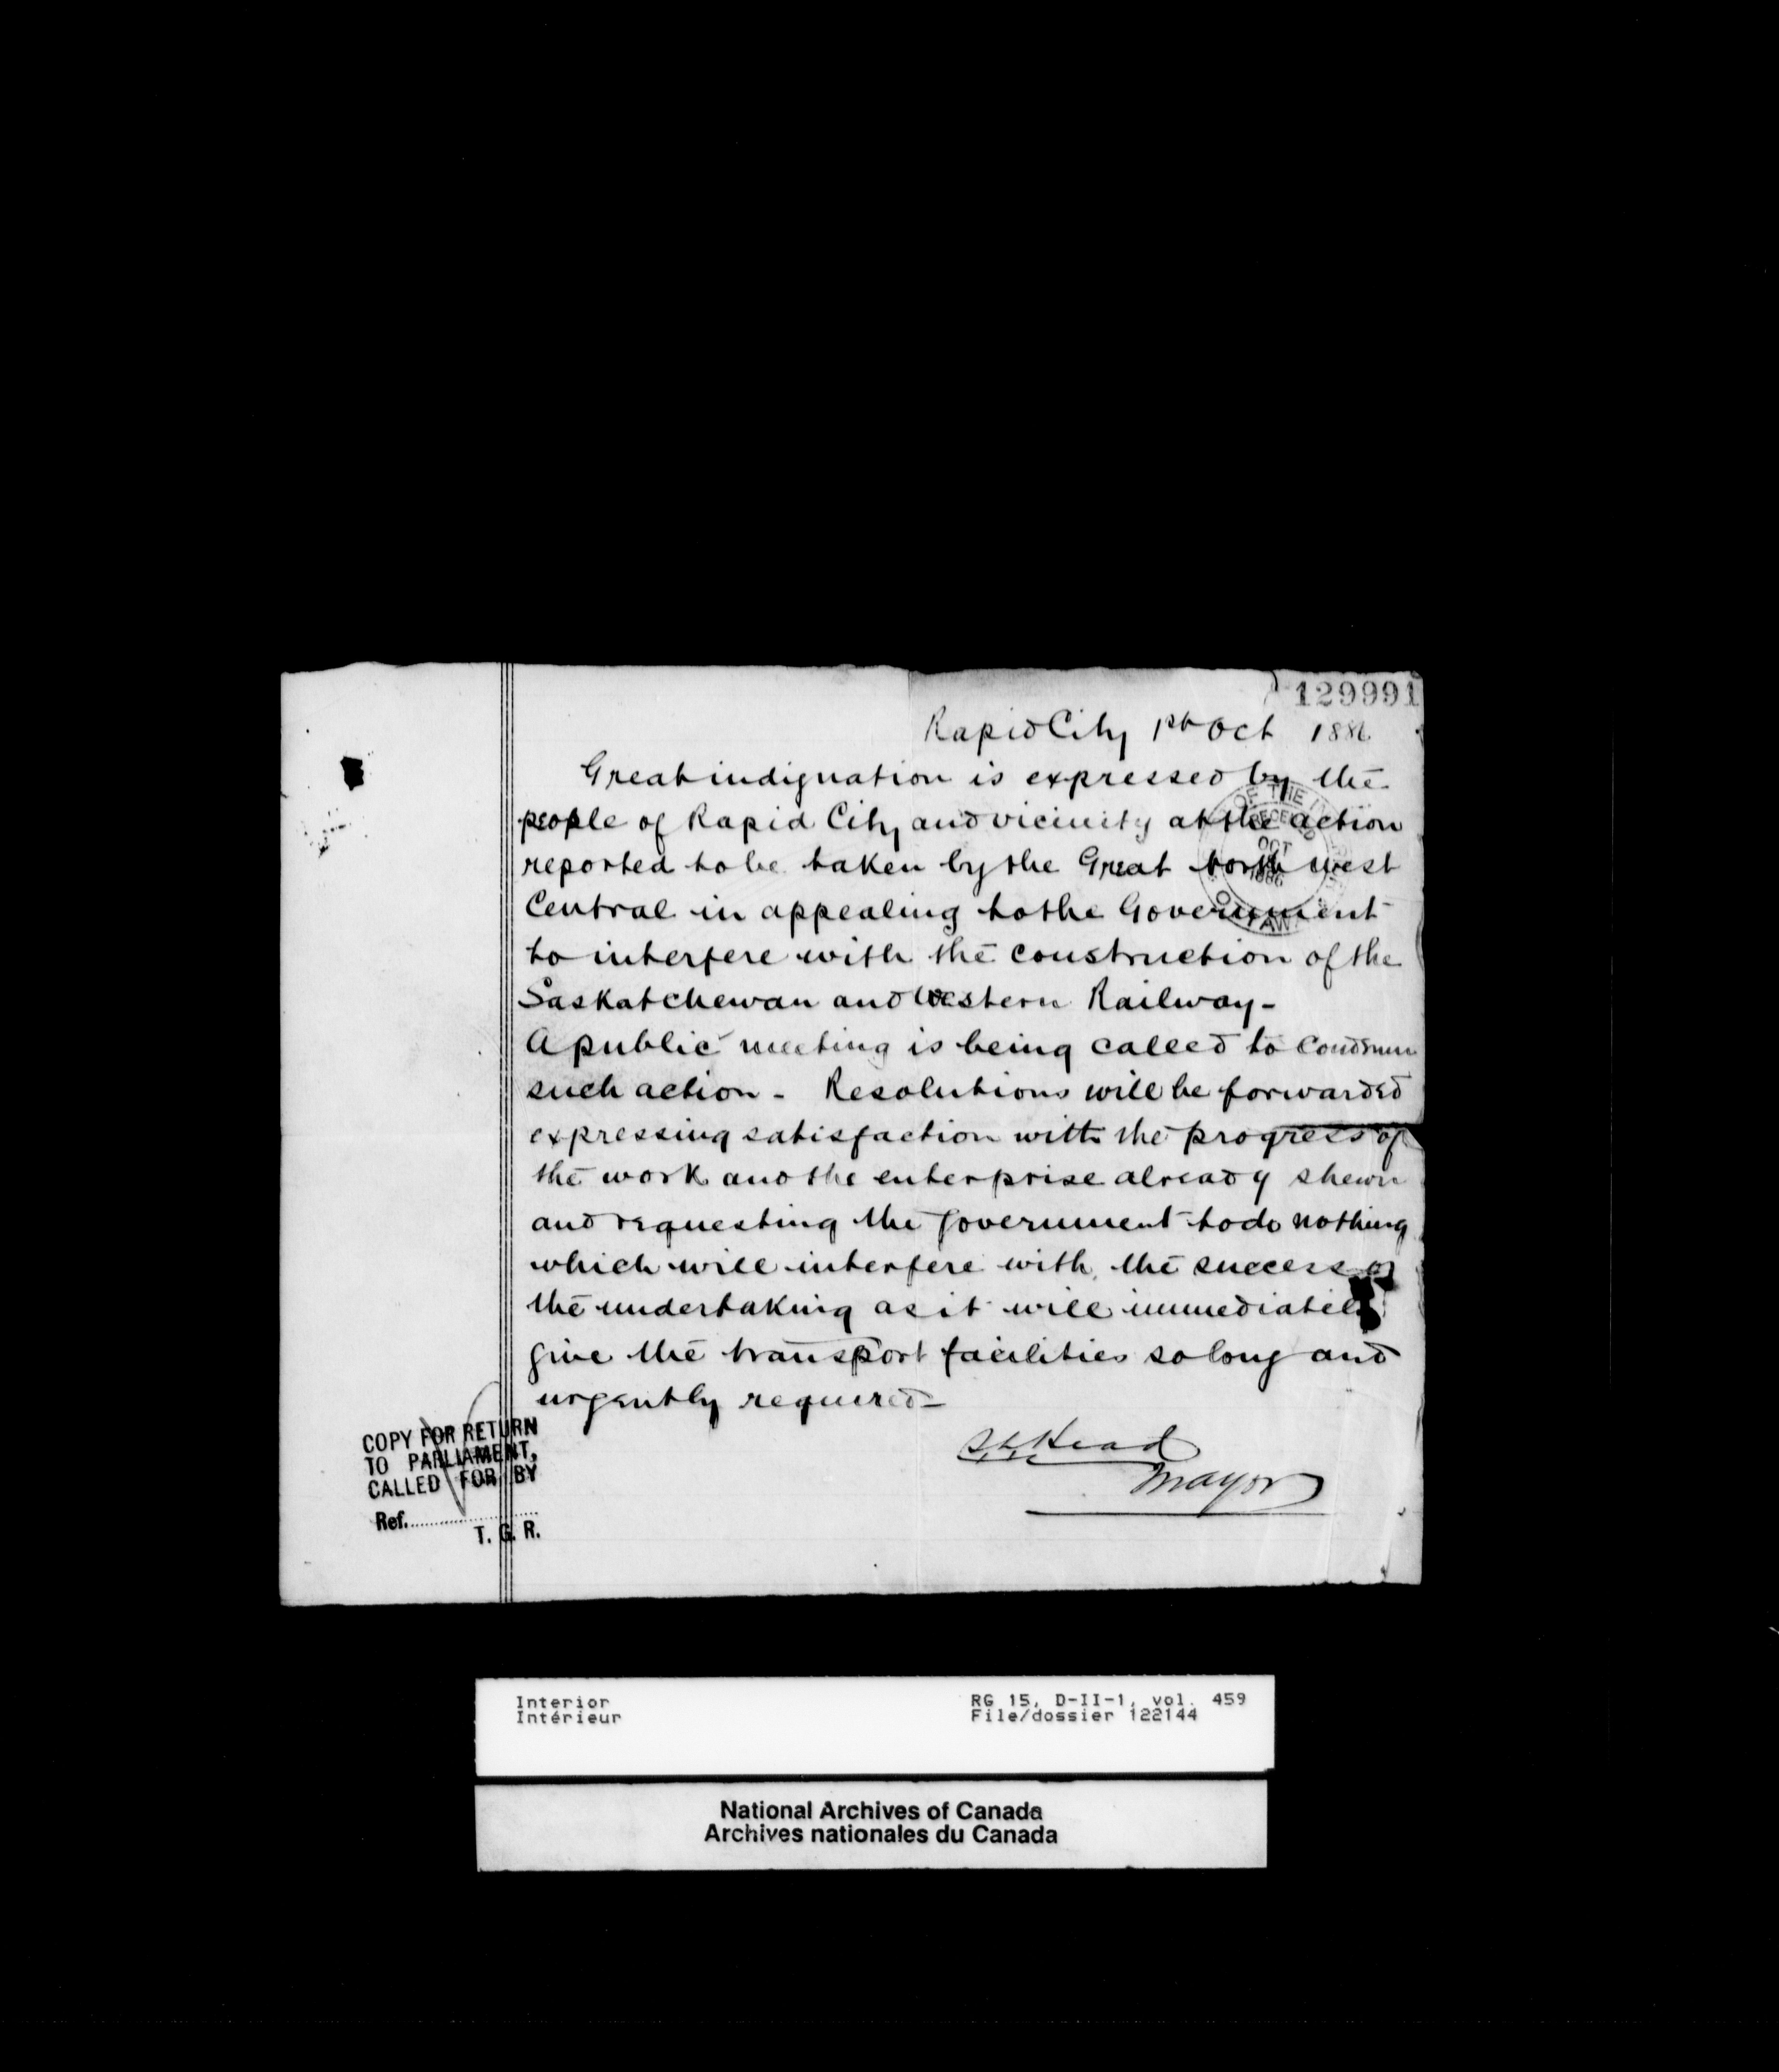 129991
Rapid City 1st Oct 1886
Great indignation is expressed by the
people of Rapid City and vicinity at the action
reported to be taken by the Great North West
Central in appealing to the Government
to interfere with the construction of the
Saskatchewan and Western Railway -
A public meeting is being called to Condemn
such action - Resolutions will be forwarded
expressing satisfaction with the progress of
the work and the enterprise already shewn
and requesting the Government to do nothing
which will interfere with the success of
the undertaking as it will immediately
give the transport facilities so long and
urgently required -
Head
Mayor
OF THE
RECEIVED
OCT
1886
COPY FOR RETURN
TO PARLIAMENT,
CALLED FOR BY
Ref..............................
T. G. R.
Interior
Intérieur
RG 15, D-II-1, vol. 459
File/dossier 122144
National Archives of Canada
Archives nationales du Canada